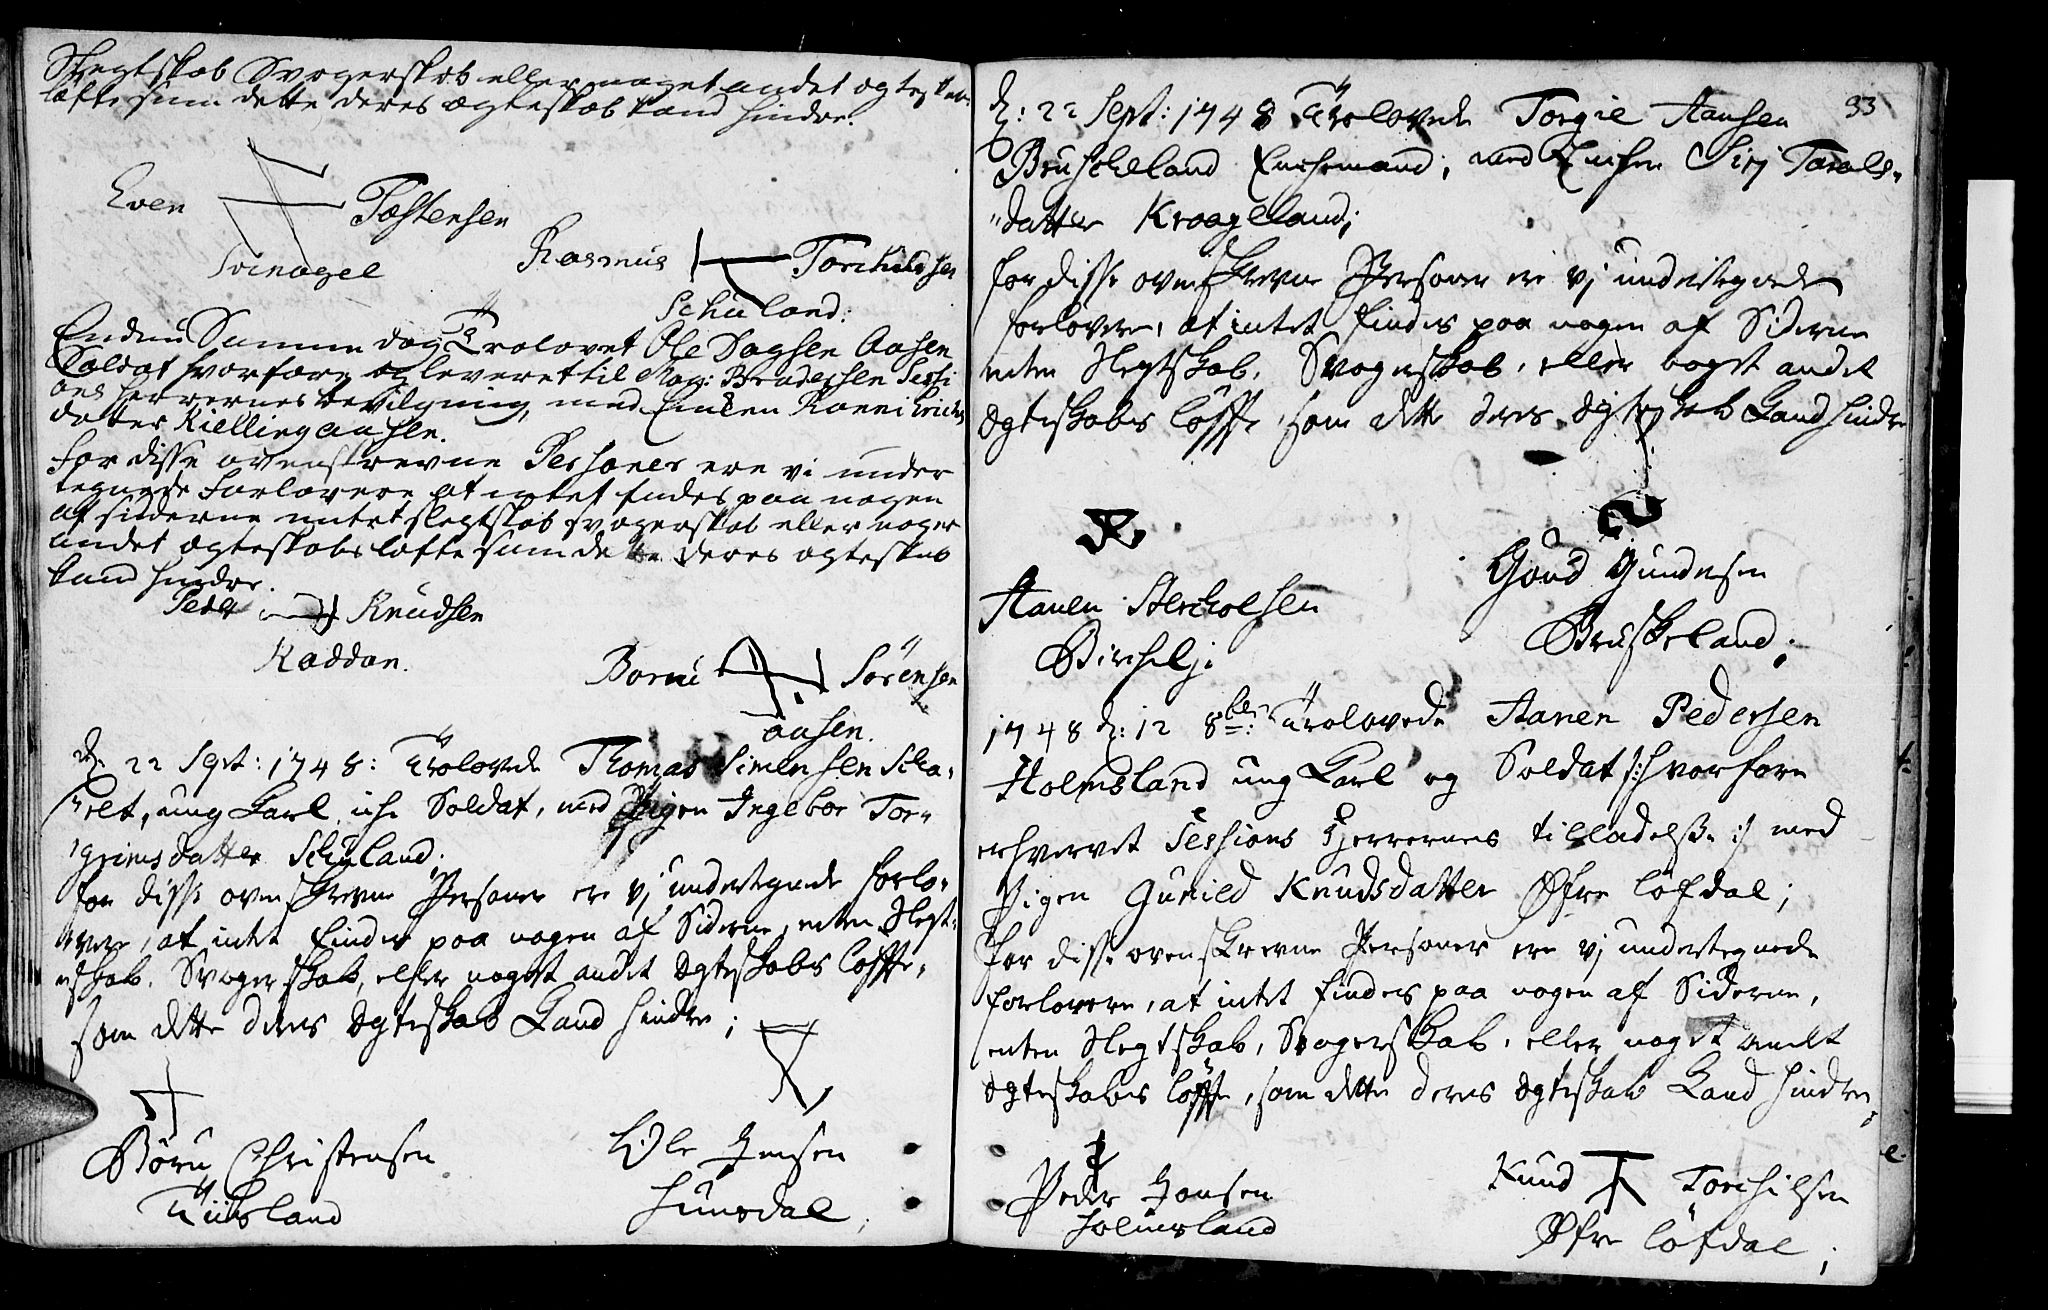 Slegtskab Svogerskab eller noget andet egteskabs
løfte som dette deres egteskab kand hindre.
Even Tostensen
Svinagel
Rasmus Torchildsen
Schuland:
Endnu Samme dag Trolovet Ole Dagsen Aasen
Soldat hvorfore og leveret til Mag: Brodersen Sessi
ons herrernes bevilgning, med Enken Ronni Erichs
datter Kiellingaasen.
for disse ovenskrevne Personer ere vi under
tegnede forlovere at intet findes paa nogen
af siderne entet slegtskab svogerskab eller noget
andet egteskabs løfte som dette deres egteskab
kand hindre.
Peder Knudsen
Raddan.
Børu Sörensen
Aasen.
d. 22 Sept: 1748: Trolovede Thomas Simensen Scha-
felt, ung Karl iche Soldat, med Pigen Ingebor Tor-
grimsdatter Schuland;
for disse ovenskrevne Personer ere vj undertegnede forlo-
vere, at intet findes paa nogen af Siderne, enten Slegt-
skab, Svogerskab, eller noget andet Egteskabs løffte,
som dette deres Egteskab Kand hindre;
Böru Christensen
land
Ole Jensen
Hunsdal;
33
d: 22 Sept: 1748 Trolovede Torgie Aansen
Bruscheland Enchemand, med Enchen Sirj Tarals-
datter Kraageland;
for disse ovenskrevne Personer ere vj undertegnede
forlovere, at intet findes paa nogen af Siderne
enten Slegtskab, Svogerskab, eller noget andet
Egteskabs löffte, som dette deres Egteskab Kand hindre
Aanen Aercholsen
Birchelj;
Goud Gundersen
Bruskeland;
1748 d: 12 8br: Trolovede Aanen Pedersen
Holmsland ung Karl og Soldat /: hvorfore
erhvervet Sessions Herrernes tilladelse :/ med
Pigen Gunild Knudsdatter Øfre löfdal;
for disse ovenskrevne Personer ere vj undertegnede
forlovere, at intet findes paa nogen af Siderne,
enten Slegtskab, Svogerskab, eller noget andet
Egteskabs löffte, som dette deres Egteskab Kand hindre;
Peder Jansen
Holmsland
Knud Torchilsen
Øfre löfdal;